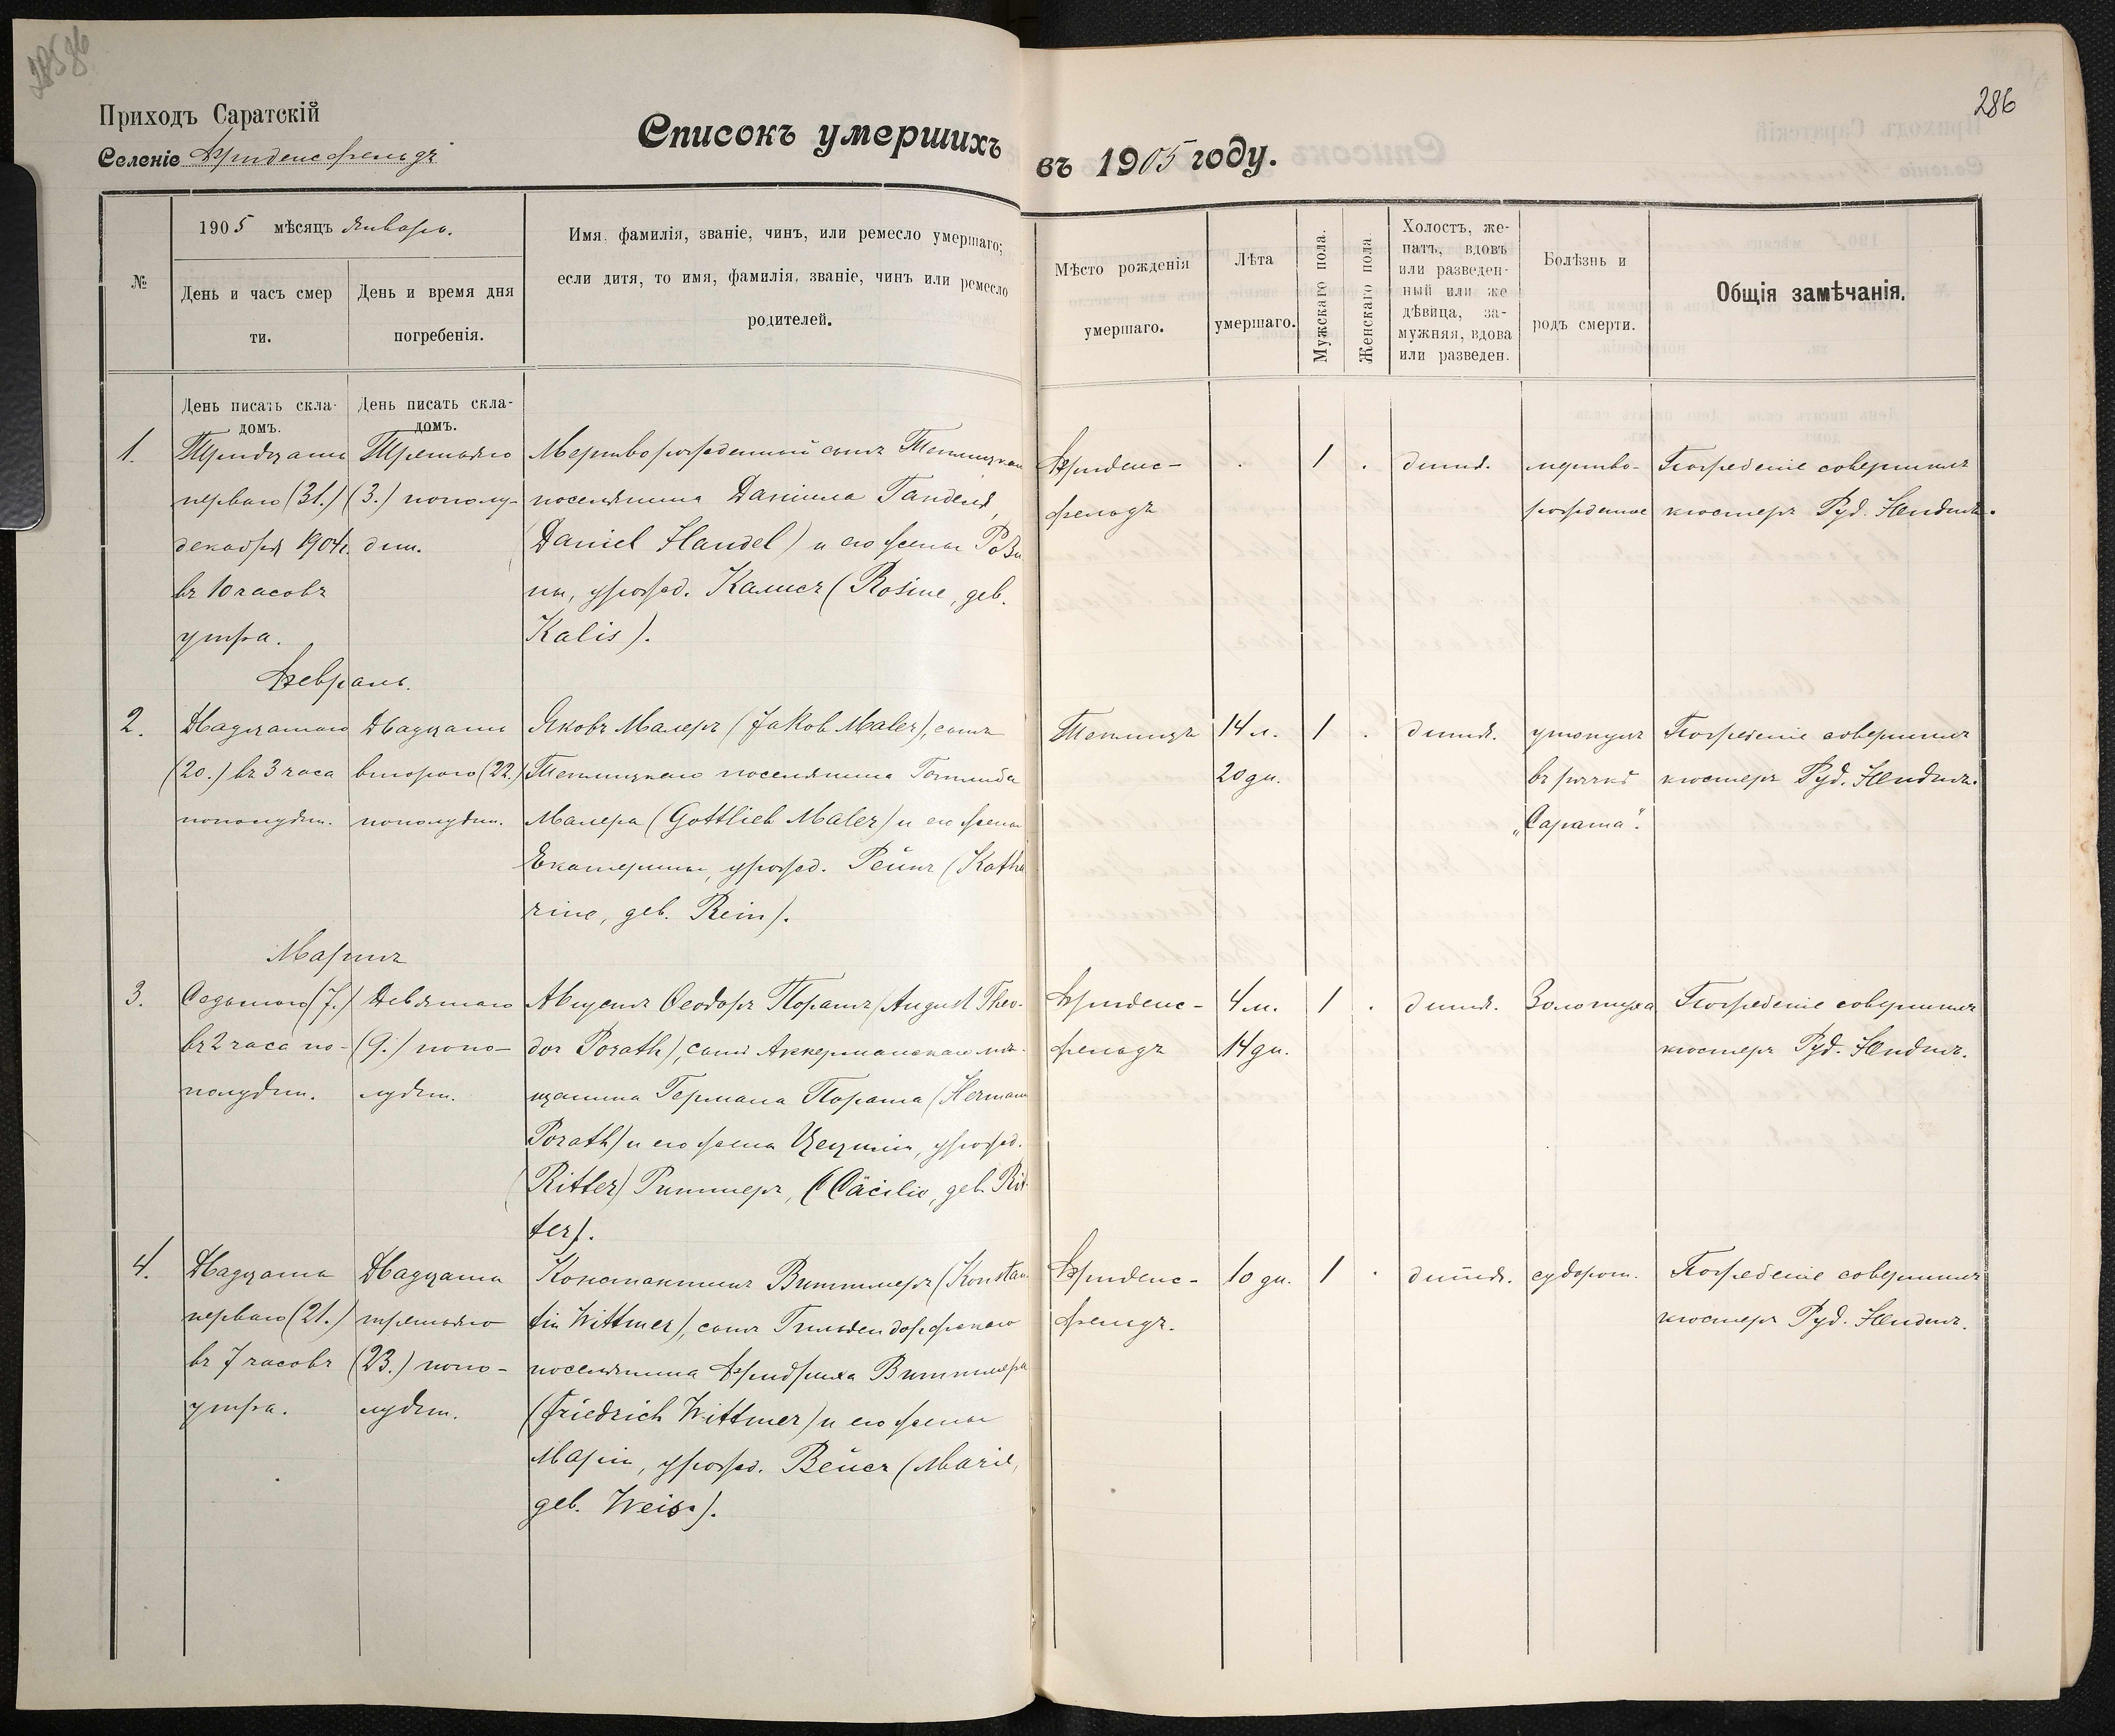 286
Приходъ Саратскій
Селеніе Фриденсфельдъ
Списокъ умершихъ въ 1905 году.
№
1905 мѣсяцъ Январь.
День и часъ смерти.
День и время дня погребенія.
Имя, фамилія, званіе, чинъ, или ремесло умершаго;
если дитя, то имя, фамилія, званіе, чинъ или ремесло
родителей.
Мѣсто рожденія
умершаго.
Лѣта
умершаго.
Мужскаго пола.
Женскаго пола
Холостъ, же-
натъ, вдовъ
или разведен-
ный или же
дѣвица, за-
мужняя, вдова
или разведен.
Болѣзнь и
родъ смерти.
Общія замѣчанія.
День писать скла-
домъ.
День писать скла-
домъ.
1.
Тридцать
перваго (31.)
декабря 1904г.
въ 10 часовъ
утра.
Третьяго
(3.) пополу-
дни.
Мертворожденный сынъ Теплицкаго
поселянина Даніила Гандель,
(Daniel Handel) и его жены Рози
ны, урожд. Калисъ (Rosine, geb.
Kalis).
Фриденс-
фельдъ
.
1
.
дитя.
мертво-
рожденное
Погребеніе совершилъ
кюстеръ Руд.
Февраль.
2.
Двадцатаго
(20.) въ 3 часа
пополудни.
Двадцать
второго (22.)
пополудни.
Яковъ Малеръ (Jakob Maler), сынъ
Теплицкаго поселянина Готлиба
Малера (Gottlieb Maler) и его жены
Екатерины, урожд. Рейнъ (Katha
rine, geb. Rein).
Теплицъ
14 л.
20 дн.
1
.
дитя.
утонулъ
въ рѣчкѣ
„Сарата".
Погребеніе совершилъ
кюстеръ Руд.
Мартъ
3.
Седьмого (7.)
въ 2 часа по-
полудни.
Девятаго
(9.) попо-
лудни.
Августъ Ѳеодоръ Поратъ (August Theo-
dor Porath), сынъ Аккерманскаго мѣ-
щанина Германа Пората (Hermann
Porath) и его жены Цециліи, урожд.
(Ritter) Риттеръ, (Cäcilie, geb. Rit-
ter).
Фриденс-
фельдъ
4 м.
14 дн.
1
.
дитя.
Золотуха
Погребеніе совершилъ
кюстеръ Руд.
4.
Двадцать
перваго (21.)
въ 7 часовъ
утра.
Двадцать
третьяго
(23.) попо-
лудни.
Константинъ Виттмеръ (Konstan
tin Wittmer), сынъ Гильдендорфскаго
поселянина Фридриха Виттмера
(Friedrich Wittmer) и его жены
Маріи, урожд. Вейсъ (Marie,
geb. Weiss).
Фриденс-
фельдъ.
10 дн.
1
.
дитя.
судорог.
Погребеніе совершилъ
кюстеръ Руд.